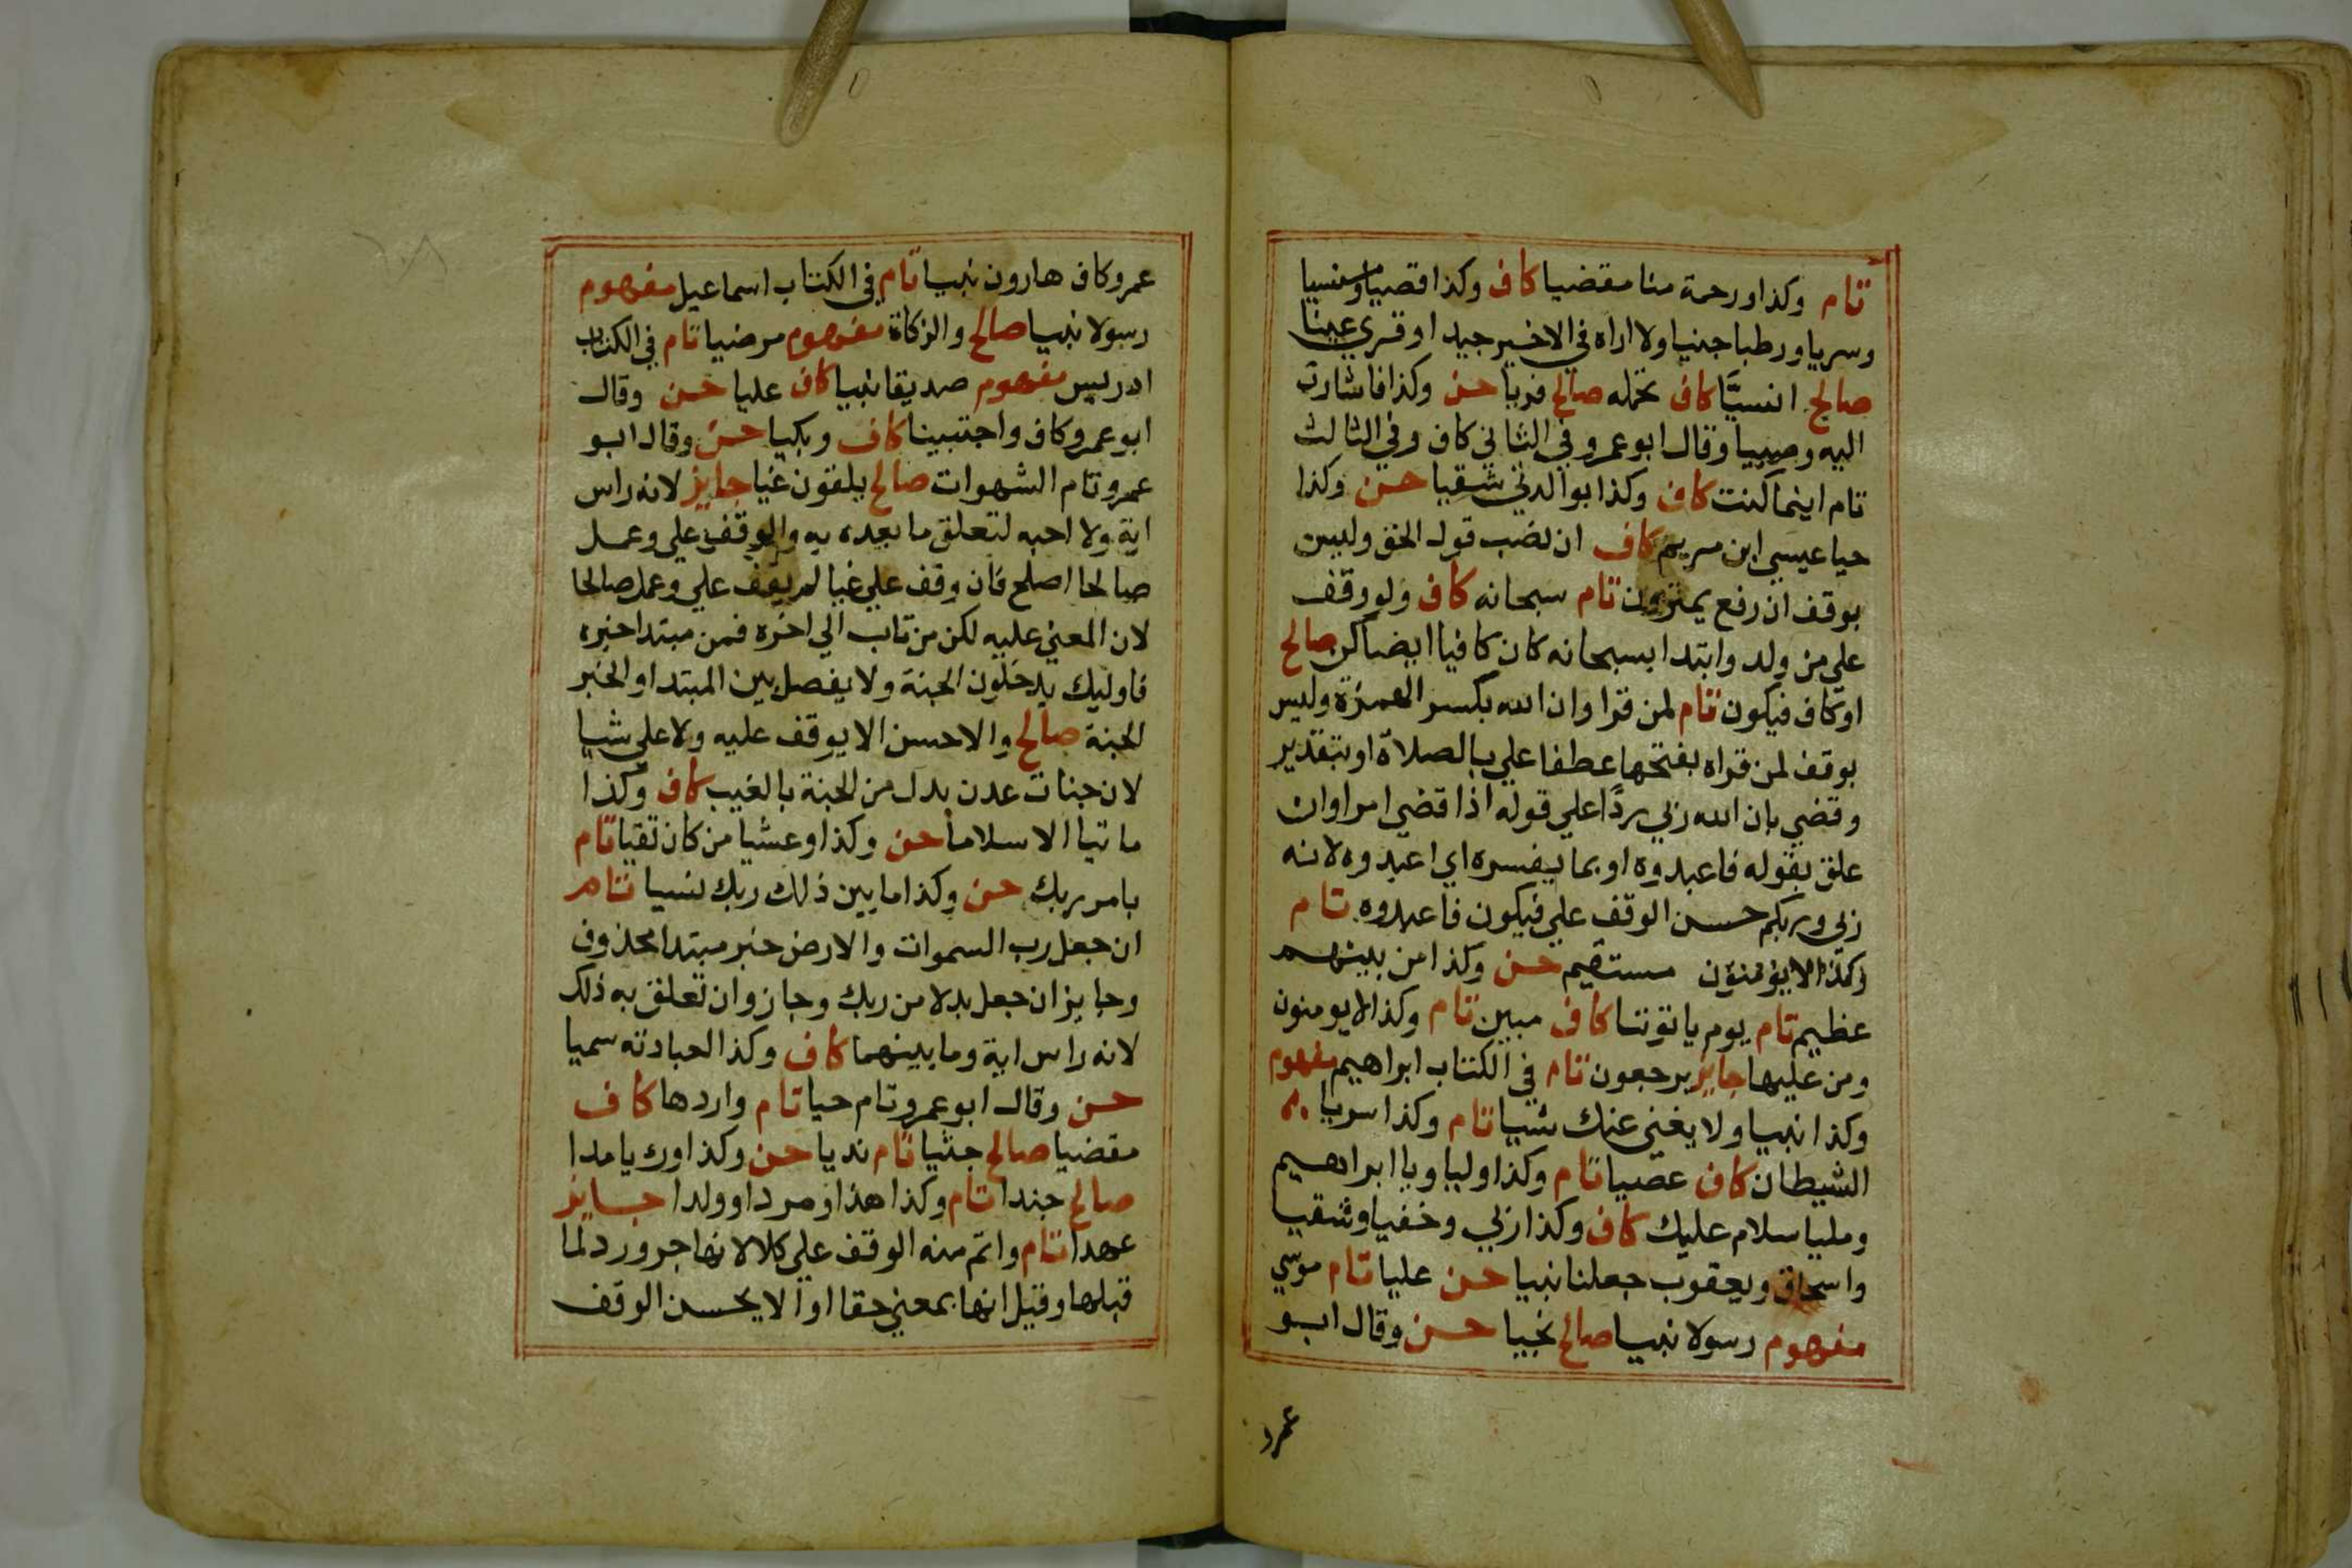 تام وكذا ورحمة منا مقضيا كاف وكذا قصيا ومنسيا
وسريا ورطبا جنيا ولا اراه في الاخير جيدا وقري عينا
صالح انسيّا كاف تحمله صالح فريا حسن وكذا فاشارت
اليه وصبيا وقال ابو عمرو في الثاني كاف وفي الثالث
تام اينما كنت كاف وكذا بوالدتي شقيا حسن وكذا
حيا عيسي ابن مريم كاف ان نصب قول الحق وليس
بوقف ان رفع يمترون تام سبحانه كاف ولو وقف
علي من ولد وابتدا بسبحانه كان كافيا ايضا كن صالح
او كاف فيكون تام لمن قرا وان الله بكسر الهمزة وليس
بوقف لمن قراه بفتحها عطفا علي بالصلاة او بتقدير
وقضي بان الله ربي ردّا علي قوله اذا قضي امرا وان
علق بقوله فاعبدوه او بما يفسره اي اعبدوه لانه
ربي وربكم حسن الوقف علي فيكون فاعبدوه تام
وكذا لا يؤمنون مستقيم حسن وكذا من بينهم
عظيم تام يوم ياتوتنا كاف مبين تام وكذا لا يومنون
ومن عليها جايز يرجعون تام في الكتاب ابراهيم مفهوم
وكذا نبيا ولا يغني عنك شيا تام وكذا سويا
الشيطان كاف عصيا تام وكذا وليا ويا ابراهيم
ومليا سلام عليك كاف وكذا ربي وخفيا وشقيا
واسحاق ويعقوب جعلنا نبيا حسن عليا تام موسي
مفهوم رسولا نبيا صالح نجيا حسن وقال ابو
عمرو
عمرو كاف هارون نبيا تام في الكتاب اسماعيل مفهوم
رسولا نبيا صالح والزكاة مفهوم مرضيا تام في الكتاب
ادريس مفهوم صديقا نبيا كاف عليا حسن وقال
ابو عمرو كاف واجتبينا كاف وبكيا حسن وقال ابو
عمرو تام الشهوات صالح يلقون غيا جايز لانه راس
اية ولا احبه لتعلق ما بعده به والوقف علي وعمل
صالحا اصلح فان وقف علي غيا لم يقف علي وعمل صالحا
لان المعني عليه لكن من تاب الي اخره فمن مبتدا خبره
فاوليك يدخلون الجنة ولا يفصل بين المبتدا والخبر
الجنة صالح والاحسن الا يوقف عليه ولا علي شيا
لان جنات عدن بدل من الجنة بالغيب كاف وكذا
ماتيا الا سلاما حسن وكذا وعشيا من كان تقيا تام
بامر ربك حسن وكذا ما بين ذلك ربك نسيا تام
ان جعل رب السموات والارض خبر مبتدا محذوف
وجايز ان جعل بدلا من ربك وجاز وان تعلق به ذلك
لانه راس اية وما بينهما كاف وكذا لعبادته سميا
حسن وقال ابو عمرو تام حيا تام واردها كاف
مقضيا صالح جثيا تام نديا حسن وكذا وريا مدا
صالح جندا تام وكذا هذا ومردا وولدا جايز
عهدا تام واتم منه الوقف علي كلا لانها جر ورد لما
قبلها وقيل انها بمعني حقا او الا يحسن الوقف